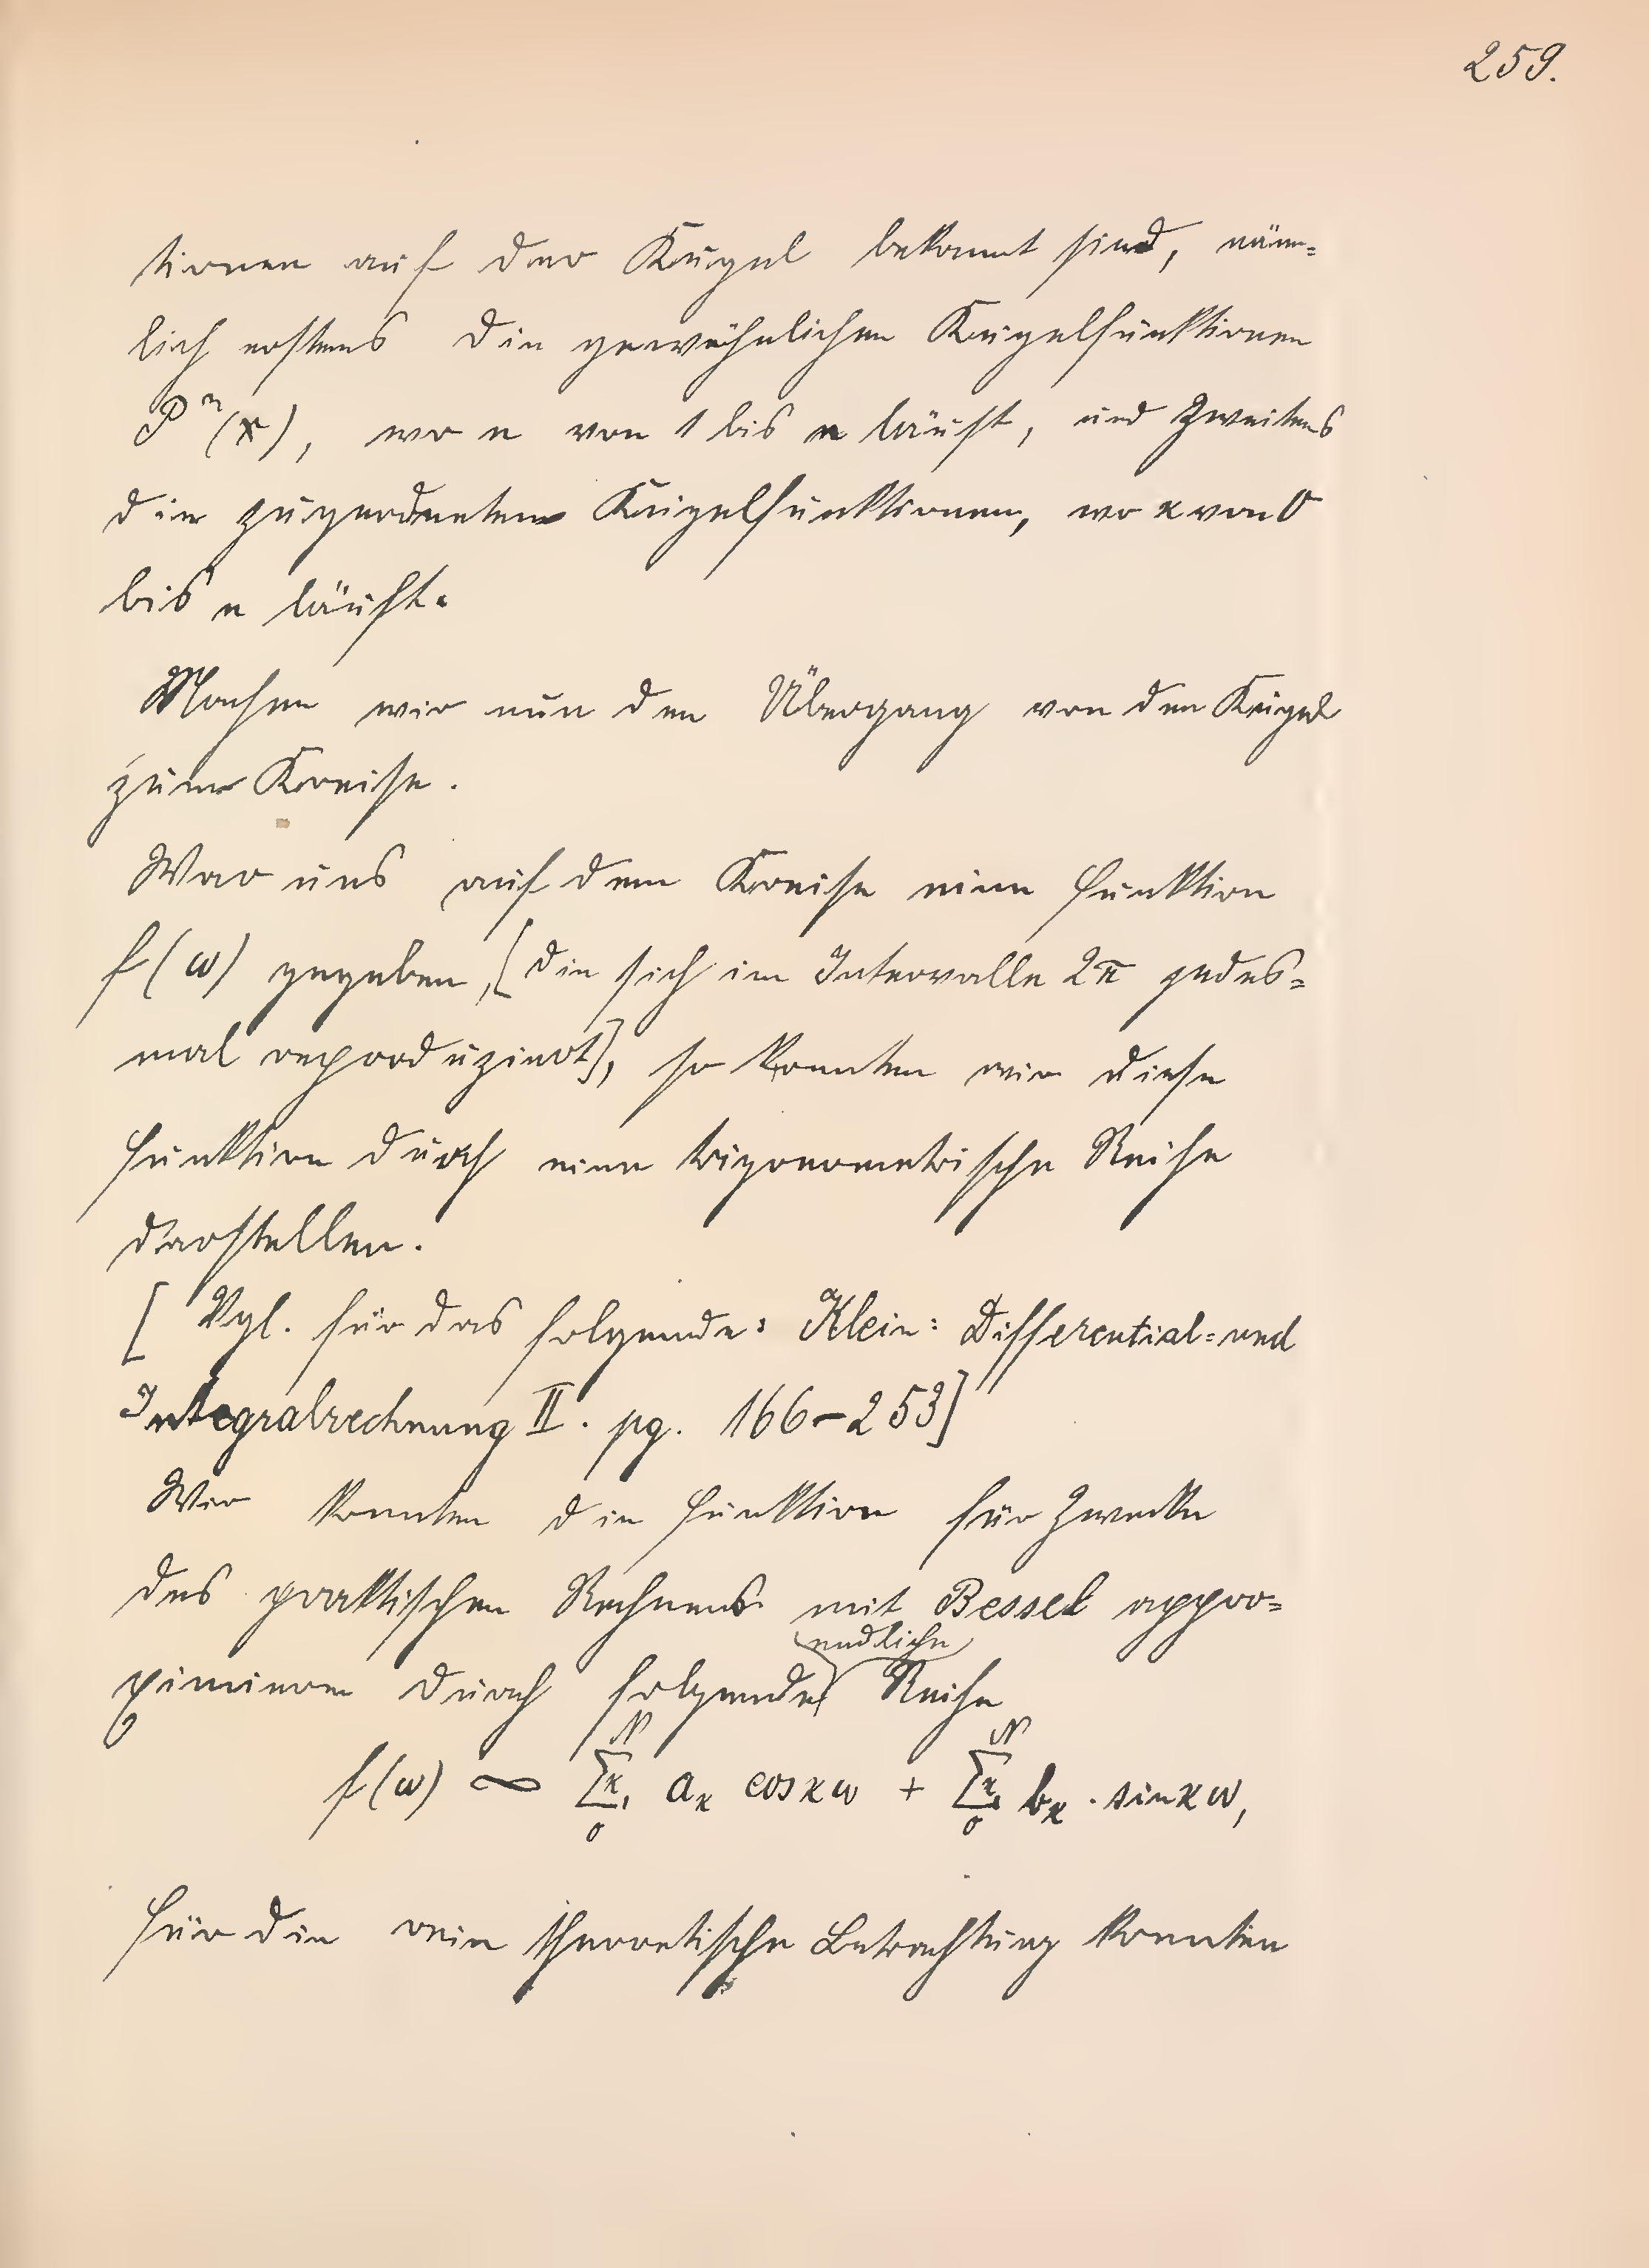 259.
tionen auf der Kugel bekannt sind, näm=
lich erstens die gewöhnlichen Kugelfunktionen
Pⁿ(x), wo n von 1 bis n läuft, und zweitens
die zugeordneten Kugelfunktionen, wo κ von 0
bis n läuft.
Machen wir nun den Übergang von der Kugel
zum Kreise.
War uns auf dem Kreise eine Funktion
f(ω) gegeben, [die sich im Intervalle 2π jedes=
mal reproduziert], so konnten wir diese
Funktion durch eine trigonometrische Reihe
darstellen.
[Vgl. für das folgende: Klein: Differential= und
Integralrechnung II. pg. 166–253]
Wir konnten die Funktion für Zwecke
des praktischen Rechnens mit Bessel appro=
endliche
ximieren durch folgende Reihe
f(ω) ∞ Σκ₁ᴺ₀ aκ cos κω + Σκ₁ᴺ₀ bκ · sin κω,
Für die rein theoretische Betrachtung konnten